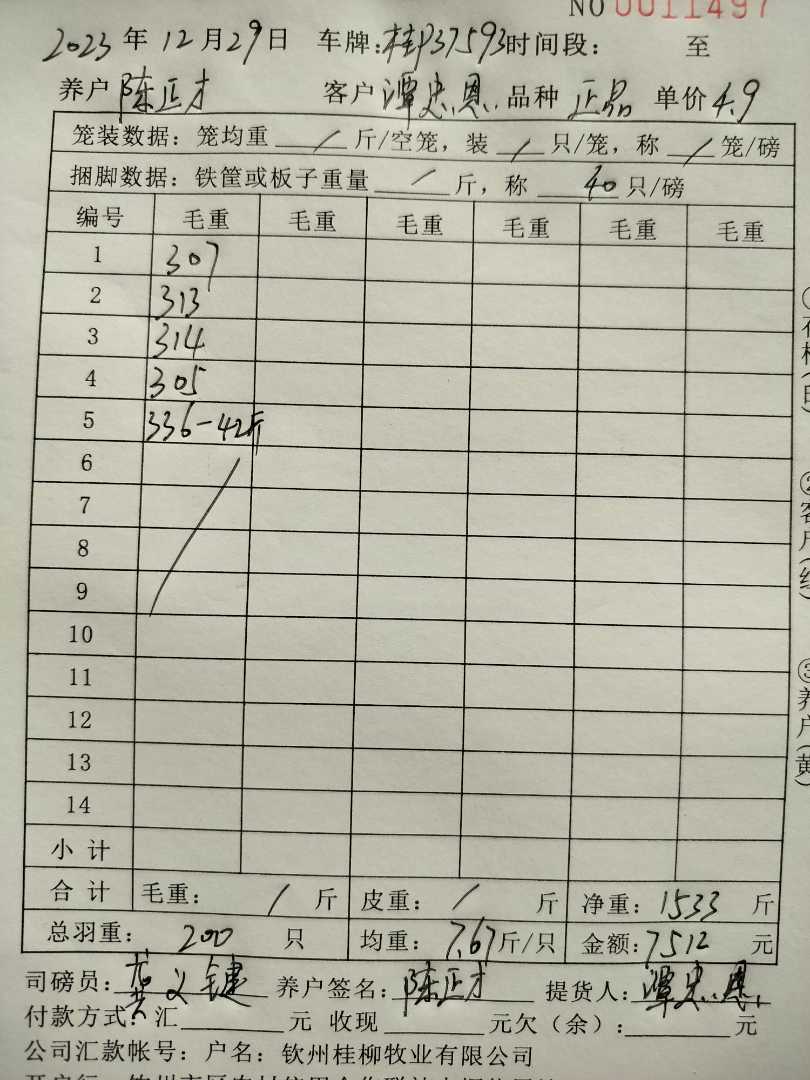 NO 0011497
2023 年 12 月 29 日 车牌:桂P37593 时间段: 至
养户 陈正才 客户 潭忠恩 品种 正品 单价 4.9
笼装数据: 笼均重 / 斤/空笼, 装 / 只/笼, 称 / 笼/磅
捆脚数据: 铁筐或板子重量 / 斤, 称 40 只/磅
编号 毛重 毛重 毛重 毛重 毛重 毛重
1 307
2 313
3 314
4 305
5 336-42斤
6
7
8
9
10
11
12
13
14
小 计
合 计 毛重: / 斤 皮重: / 斤 净重: 1533 斤
总羽重: 200 只 均重: 7.67 斤/只 金额: 7512 元
司磅员: 黄义键 养户签名: 陈正才 提货人: 潭忠恩
付款方式: 汇 元 收现 元欠（余）: 元
公司汇款帐号: 户名: 钦州桂柳牧业有限公司
②客户(红)
③养户(黄)